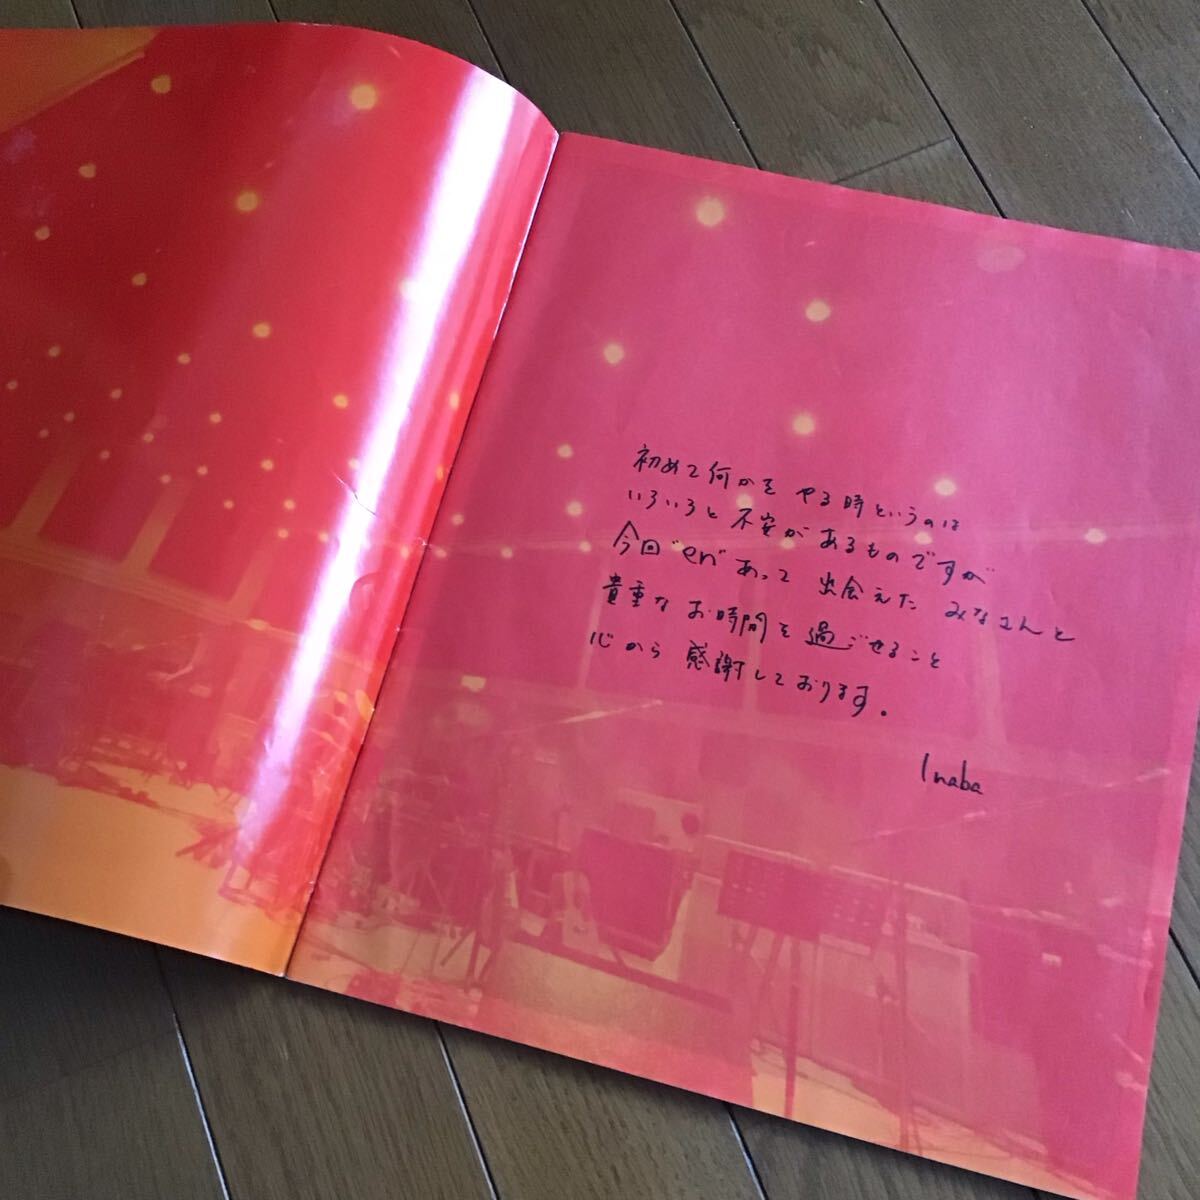 初めて何かを やる時というのは
いろいろと 不安が あるものですが
今回 "en" あって 出会えた みなさんと
貴重な お時間を 過ごせること
心から 感謝しております。
Inaba